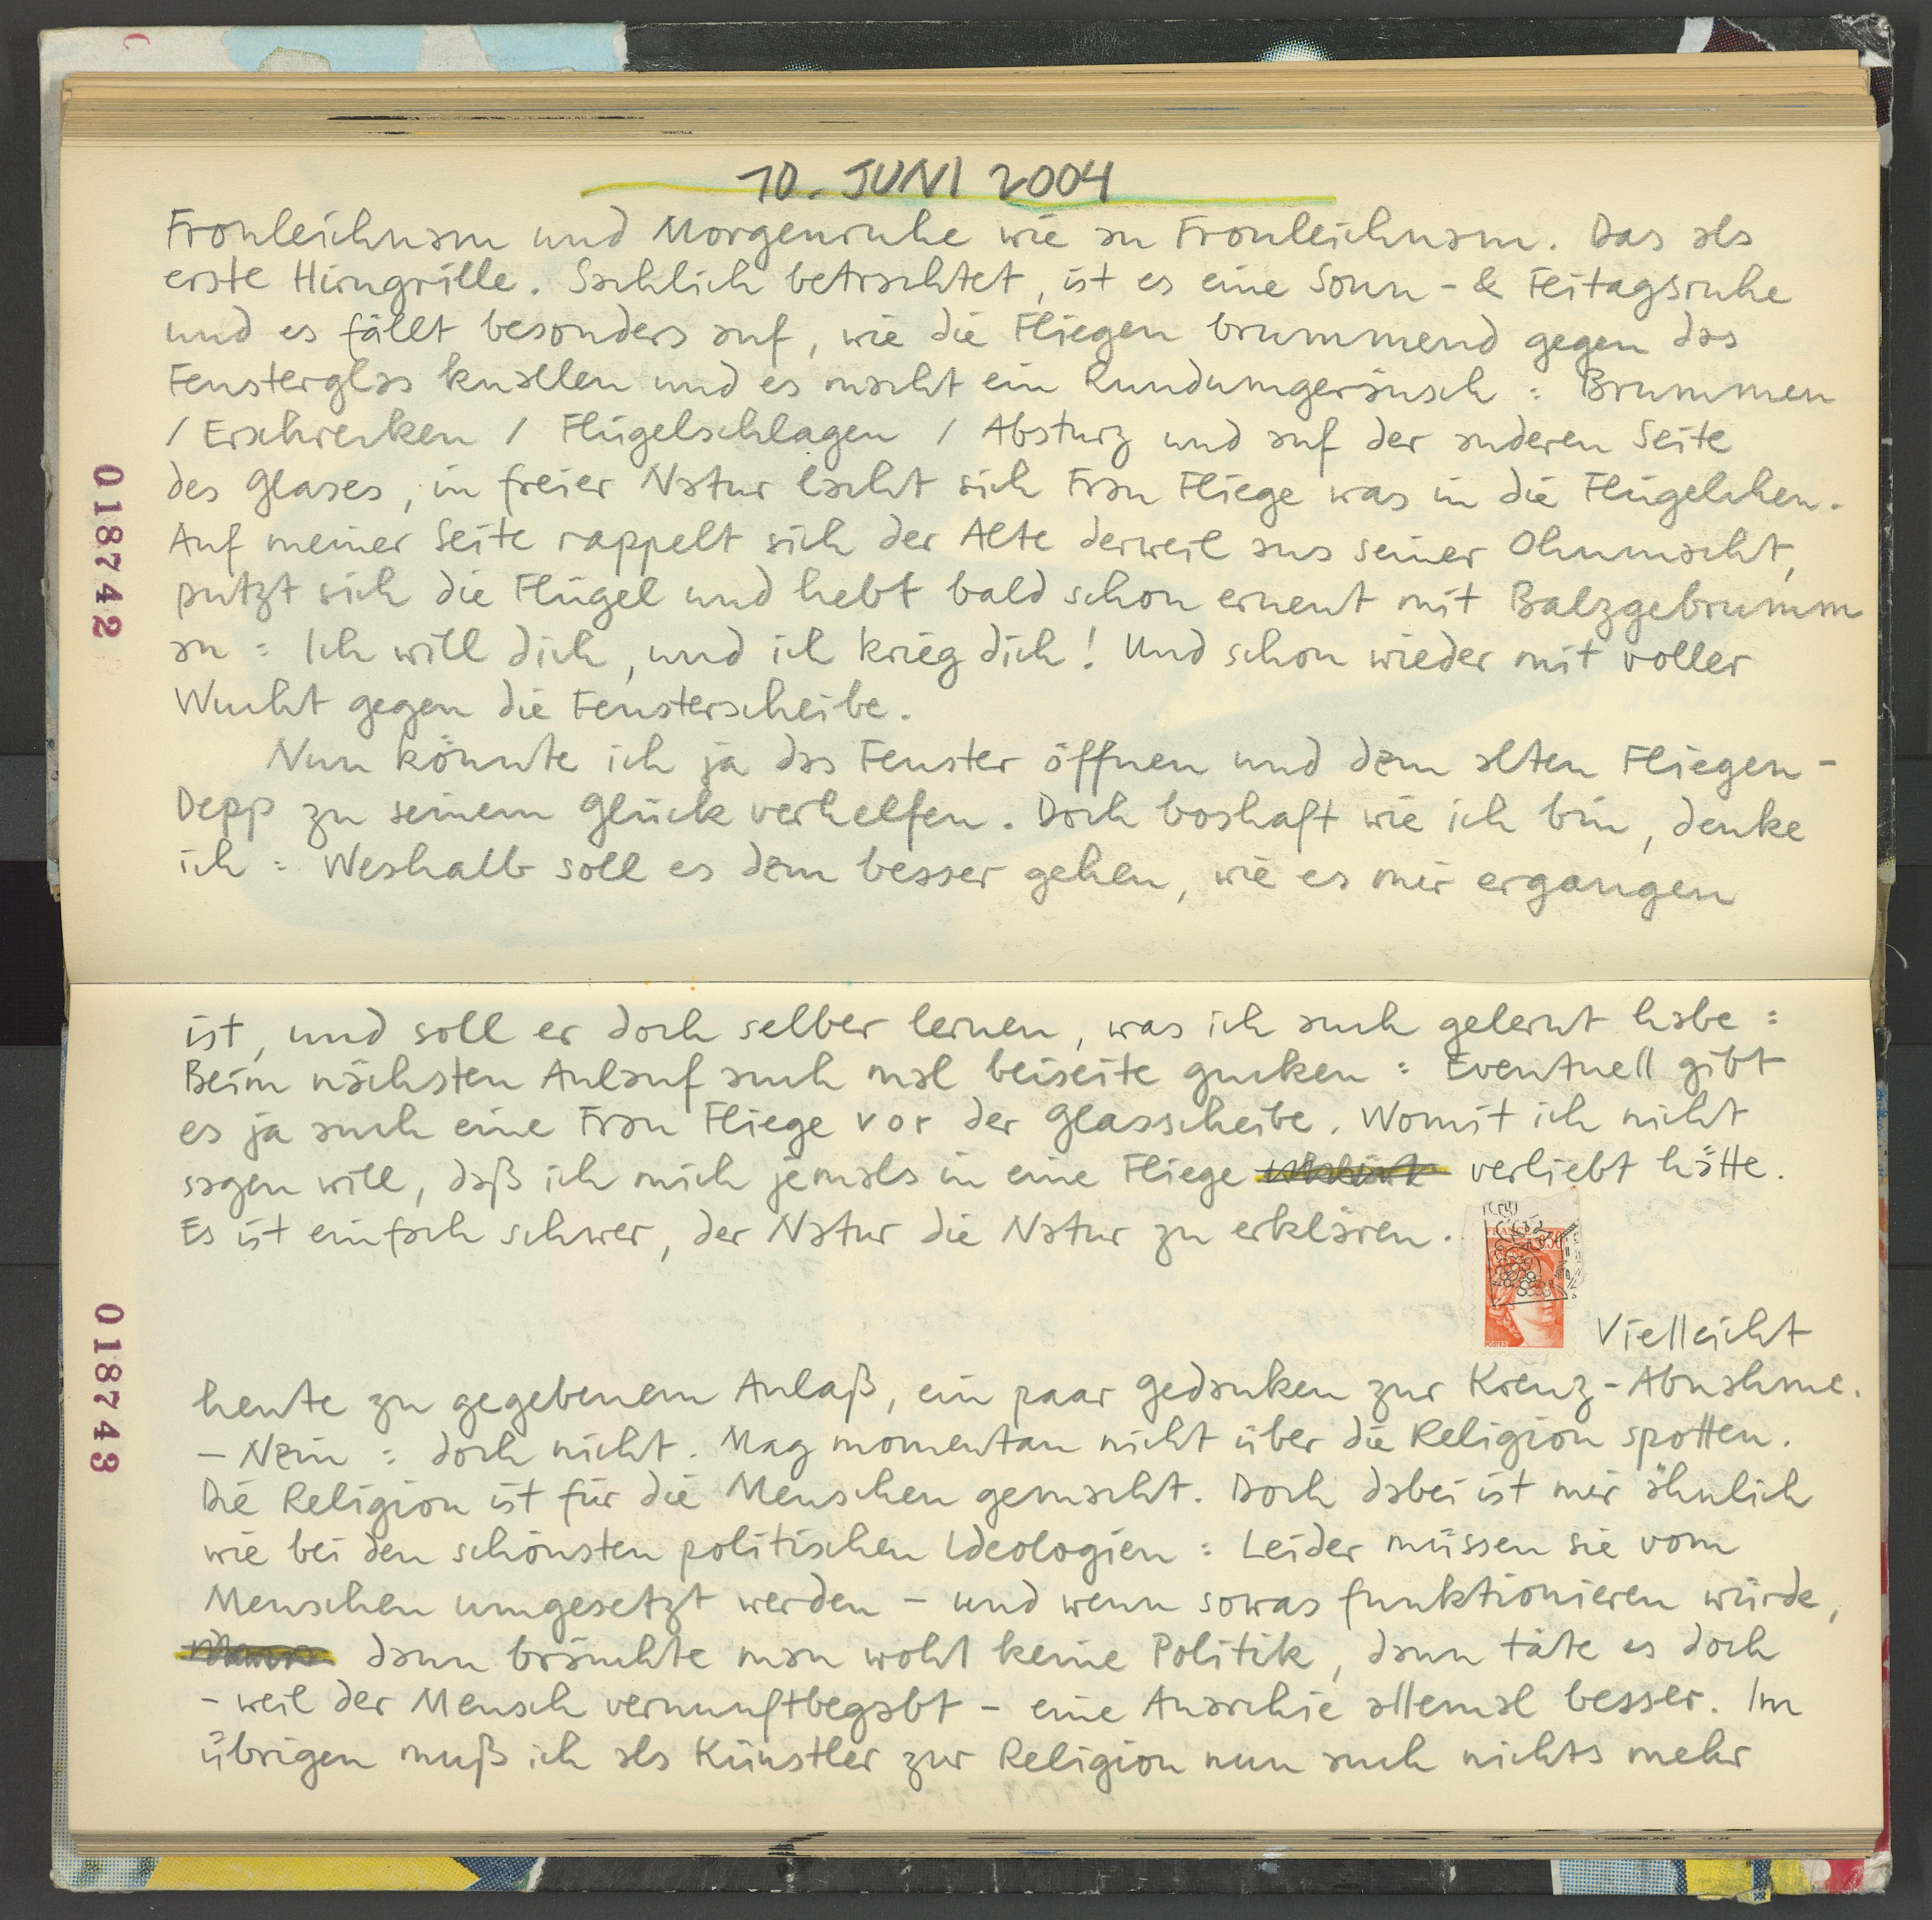 10. JUNI 2004
Fronleichnam und Morgenruhe wie an Fronleichnam. Das als
erste Hirngrille. Sachlich betrachtet, ist es eine Sonn- & Feitagsruhe
und es fällt besonders auf, wie die Fliegen brummend gegen das
Fensterglas knallen und es macht ein Rundumgeräusch: Brummen
/ Erschrecken / Flügelschlagen / Absturz und auf der anderen Seite
des Glases, in freier Natur lacht sich Frau Fliege was in die Flügelchen.
Auf meiner Seite rappelt sich der Alte derweil aus seiner Ohnmacht,
putzt sich die Flügel und hebt bald schon erneut mit Balzgebrumm
an: Ich will dich, und ich krieg dich! Und schon wieder mit voller
Wucht gegen die Fensterscheibe.
Nun könnte ich ja das Fenster öffnen und dem alten Fliegen-
Depp zu seinem Glück verhelfen. Doch boshaft wie ich bin, denke
ich: Weshalb soll es dem besser gehen, wie es mir ergangen
018742
ist, und soll er doch selber lernen, was ich auch gelernt habe:
Beim nächsten Anlauf auch mal beiseite gucken: Eventuell gibt
es ja auch eine Frau Fliege vor der Glasscheibe. Womit ich nicht
sagen will, daß ich mich jemals in eine Fliege verliebt hätte.
Es ist einfach schwer, der Natur die Natur zu erklären.
Vielleicht
heute zu gegebenem Anlaß, ein paar Gedanken zur Kreuz-Abnahme.
- Nein: doch nicht. Mag momentan nicht über die Religion spotten.
Die Religion ist für die Menschen gemacht. Doch dabei ist mir ähnlich
wie bei den schönsten politischen Ideologien: Leider müssen sie vom
Menschen umgesetzt werden - und wenn sowas funktionieren würde,
dann bräuchte man wohl keine Politik, dann täte es doch
- weil der Mensch vernunftbegabt - eine Anarchie allemal besser. Im
übrigen muß ich als Künstler zur Religion nun auch nichts mehr
018743